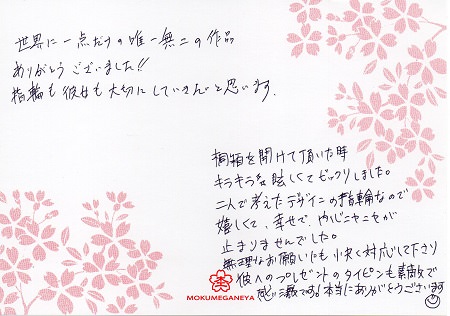 世界に一点だけの唯一無二の作品
ありがとうございました!!
指輪も彼女も大切にしていきたいと思います。
桐箱を開けて頂いた時
キラキラ眩しくてビックリしました。
二人で考えたデザインの指輪なので
嬉しくて、幸せで、内心ニヤニヤが
止まりませんでした。
無理なお願いにも心よく対応して下さり
彼へのプレゼントのタイピンも素敵で
感激です。本当にありがとうございます
MOKUMEGANEYA